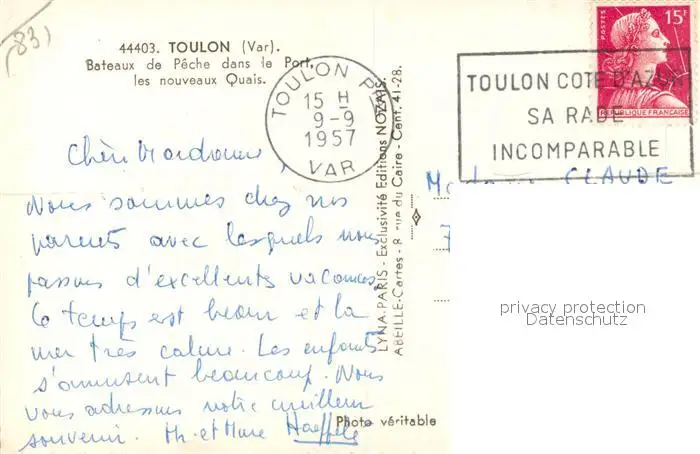 (83)
44403. TOULON (Var).
Bateaux de Pêche dans le Port,
les nouveaux Quais.
TOULON
15 H
9-9
1957
VAR
TOULON COTE D'AZUR
SA RADE
INCOMPARABLE
POSTES
15F
REPUBLIQUE FRANCAISE
Chère Madame,
Nous sommes chez nos
parents avec lesquels nous
passons d'excellentes vacances
Le temps est beau et la
mer très calme. Les enfants
s'amusent beaucoup. Nous
vous adressons notre meilleur
souvenir. Mr. et Mme Haeffelé
LYNA-PARIS - Exclusivité Editions NOZAIS.
ABEILLE-Cartes - 8 rue du Caire - Cent. 41-28.
CLAUDE
7
privacy protection
Datenschutz
Photo véritable